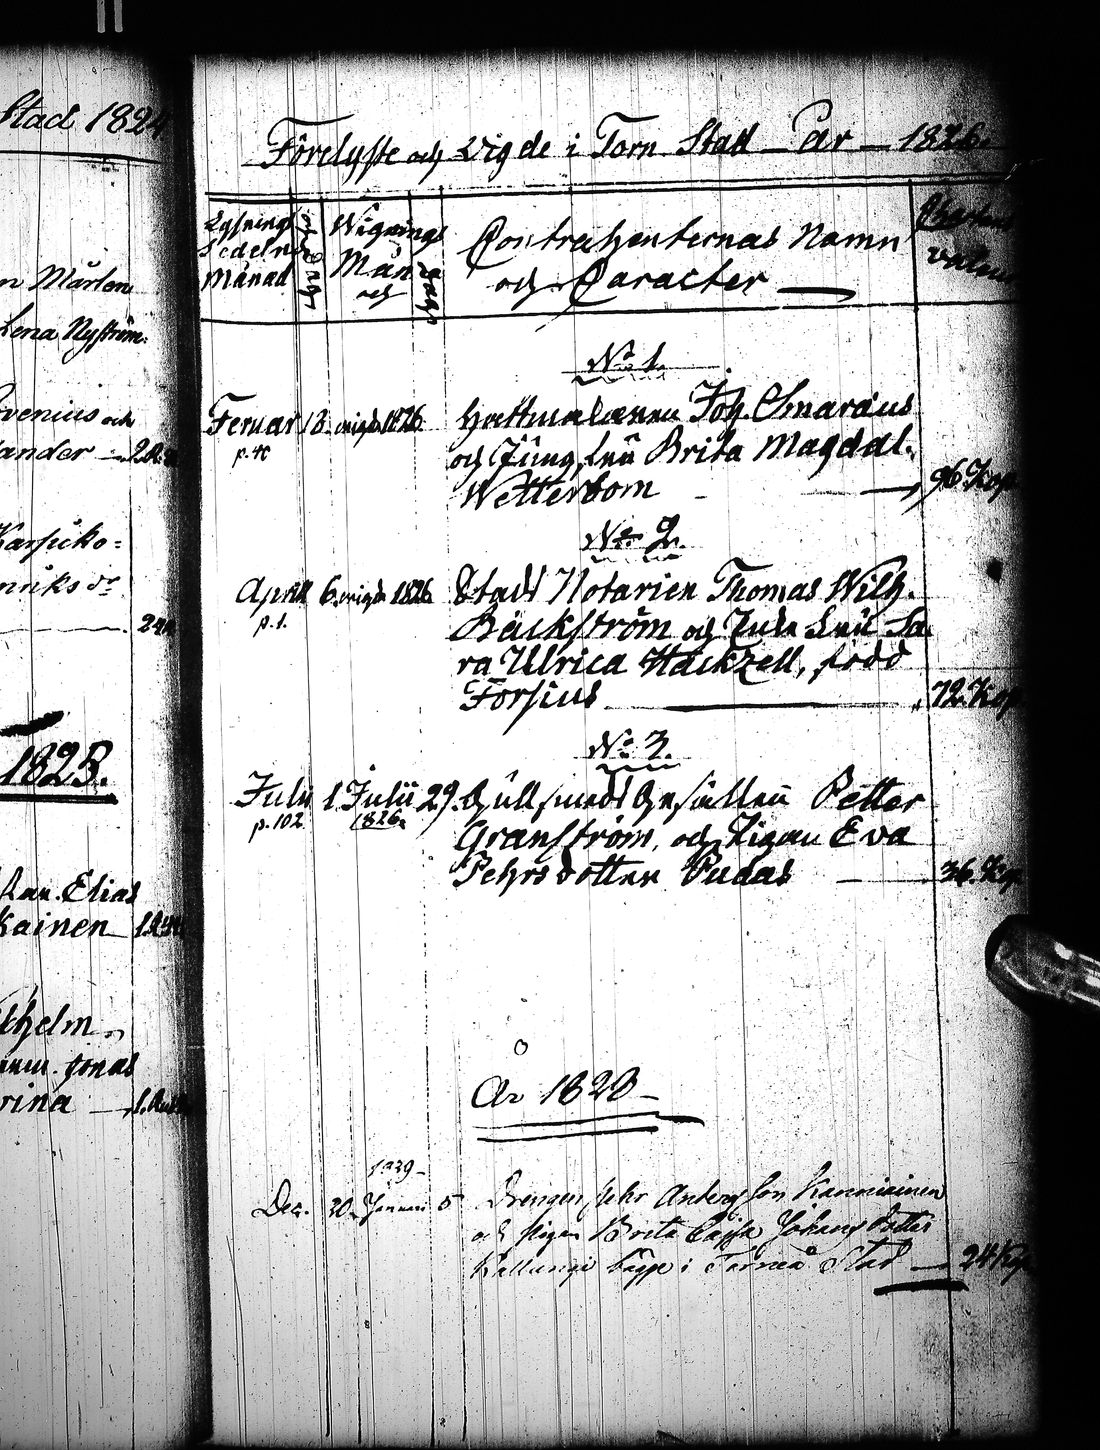 Stad 1824
n Mårten
Lena Nyström.
venius och
ander
Karsuko=
nriks dr
24
1823.
Elias
kainen
lhelm
Jonas
rina
Förelyste och Vigde i Torn. Stad År 1826.
Lysnings Sedelns Månad och Dag
Wignings Mån och Dag
Contrahenternas Namn
och Caracter
No 1.
Februar 13. vigde 1826.
p. 4
Hattmakaren Joh. Smaraus
och Jungfrun Brita Magdal.
Wetterbom 96 Kop.
No 2.
April 6. vigde 1826.
p. 1.
Stads Notarien Thomas Wilh.
Bäckström och Enke Frun Sa
ra Ulrica Hackzell, född
Forsius 72 Kop.
No 3.
Julii 1. Julii 29.
p. 102 1826.
Gullsmeds Gesällen Petter
Granström, och Pigan Eva
Pehrsdotter Pudas 36. Kop.
År 1828
1829
Dec. 20. Januari 5
Drengen Pehr Andersson Kanniainen
och Pigan Brita Cajsa Johansdotter
Kallungi bägge i Torneå Stad 24 Kop.